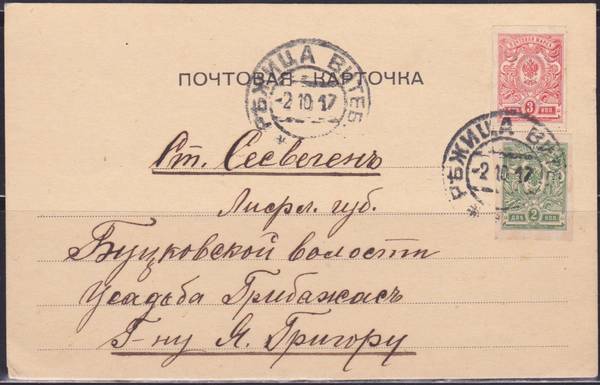 ПОЧТОВАЯ КАРТОЧКА
РѢЖИЦА ВИТЕБ.
-2 10 17
3 КОП
РѢЖИЦА ВИТ
-2 10 17
ДВѢ 2 КОП
Ст. Сесвегенъ
Лифл. губ.
Буцковской волости
Усадьба Грибажасъ
Г-ну Я. Григору